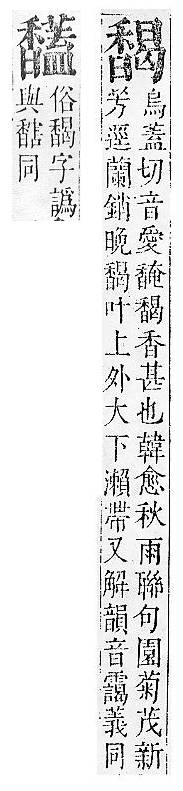 馤
烏蓋切音愛馣馤香甚也韓愈秋雨聯句園菊茂新
芳逕蘭銷晚馤叶上外大下瀨帶又解韻音靄義同
俗馤字譌
與同